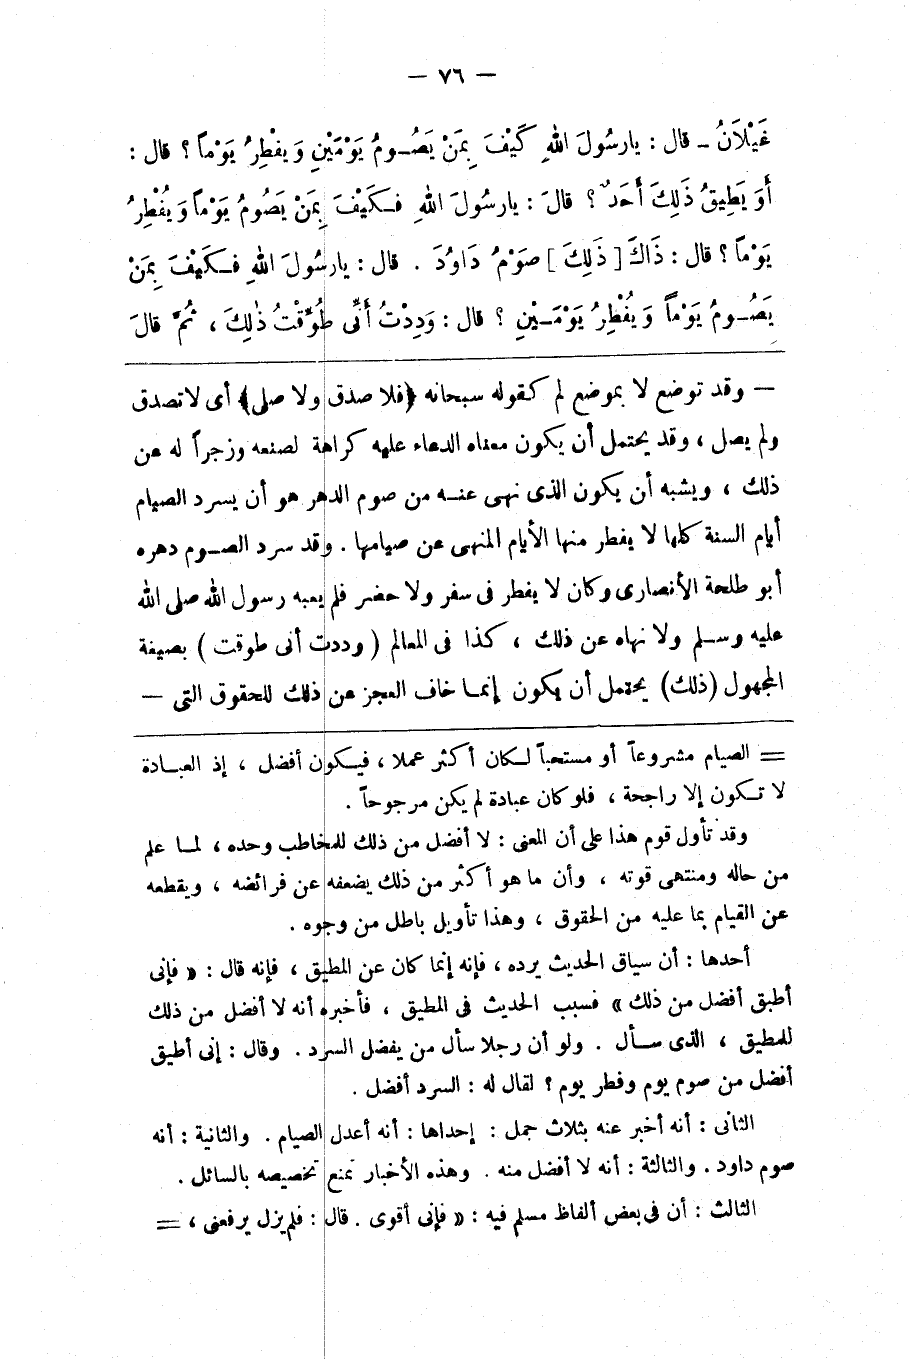 — ٧٦ —
غَيْلَانُ ـ قال : يارسُولَ اللهِ كَيْفَ بِمَنْ يَصُومُ يَوْمَيْنِ وَيفْطِرُ يَوْماً ؟ قال :
أَوَ يَطِيقُ ذَلِكَ أَحَدٌ ؟ قالَ : يارسُولَ اللهِ فَكَيْفَ بِمَنْ يَصُومُ يَوْماً وَيُفْطِرُ
يَوْماً ؟ قال : ذَاكَ [ ذَلِكَ ] صَوْمُ دَاوُدَ . قال : يارسُولَ اللهِ فَكَيْفَ بِمَنْ
يَصُومُ يَوْماً وَيُفْطِرُ يَوْمَيْنِ ؟ قال : وَدِدْتُ أَنِّى طُوِّقْتُ ذٰلِكَ ، ثُمَّ قالَ
— وقد توضع لا بموضع لم كقوله سبحانه ﴿فلا صدق ولا صلى﴾ أى لاتصدق
ولم يصل ، وقد يحتمل أن يكون معناه الدعاء عليه كراهة لصنعه وزجراً له عن
ذلك ، ويشبه أن يكون الذى نهى عنه من صوم الدهر هو أن يسرد الصيام
أيام السنة كلها لا يفطر منها الأيام المنهى عن صيامها . وقد سرد الصوم دهره
أبو طلحة الأنصارى وكان لا يفطر فى سفر ولا حضر فلم يعبه رسول الله صلى الله
عليه وسلم ولا نهاه عن ذلك ، كذا فى المعالم ( وددت أنى طوقت ) بصيغة
المجهول (ذلك) يحتمل أن يكون إنما خاف العجز عن ذلك للحقوق التى —
= الصيام مشروعاً أو مستحباً لكان أكثر عملا ، فيكون أفضل ، إذ العبادة
لا تكون إلا راجحة ، فلو كان عبادة لم يكن مرجوحاً .
وقد تأول قوم هذا على أن المعنى : لا أفضل من ذلك للمخاطب وحده ، لما علم
من حاله ومنتهى قوته ، وأن ما هو أكثر من ذلك يضعفه عن فرائضه ، ويقطعه
عن القيام بما عليه من الحقوق ، وهذا تأويل باطل من وجوه .
أحدها : أن سياق الحديث يرده ، فإنه إنما كان عن المطيق ، فإنه قال : « فإنى
أطيق أفضل من ذلك » فسبب الحديث فى المطيق ، فأخبره أنه لا أفضل من ذلك
للمطيق ، الذى سأل . ولو أن رجلا سأل من يفضل السرد . وقال : إنى أطيق
أفضل من صوم يوم وفطر يوم ؟ لقال له : السرد أفضل .
الثانى : أنه أخبر عنه بثلاث جمل : إحداها : أنه أعدل الصيام . والثانية : أنه
صوم داود . والثالثة : أنه لا أفضل منه . وهذه الأخبار تمنع تخصيصه بالسائل .
الثالث : أن فى بعض ألفاظ مسلم فيه : « فإنى أقوى . قال : فلم يزل يرفعنى ، =